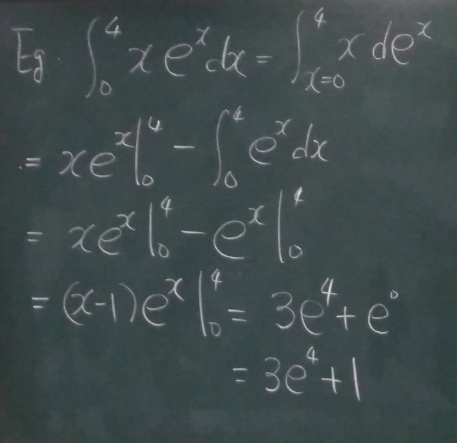 Eg. ∫₀⁴ x eˣ dx = ∫ₓ₌₀⁴ x deˣ
= xeˣ|₀⁴ − ∫₀⁴ eˣ dx
= xeˣ|₀⁴ − eˣ|₀⁴
= (x-1)eˣ|₀⁴ = 3e⁴ + e⁰
= 3e⁴ + 1